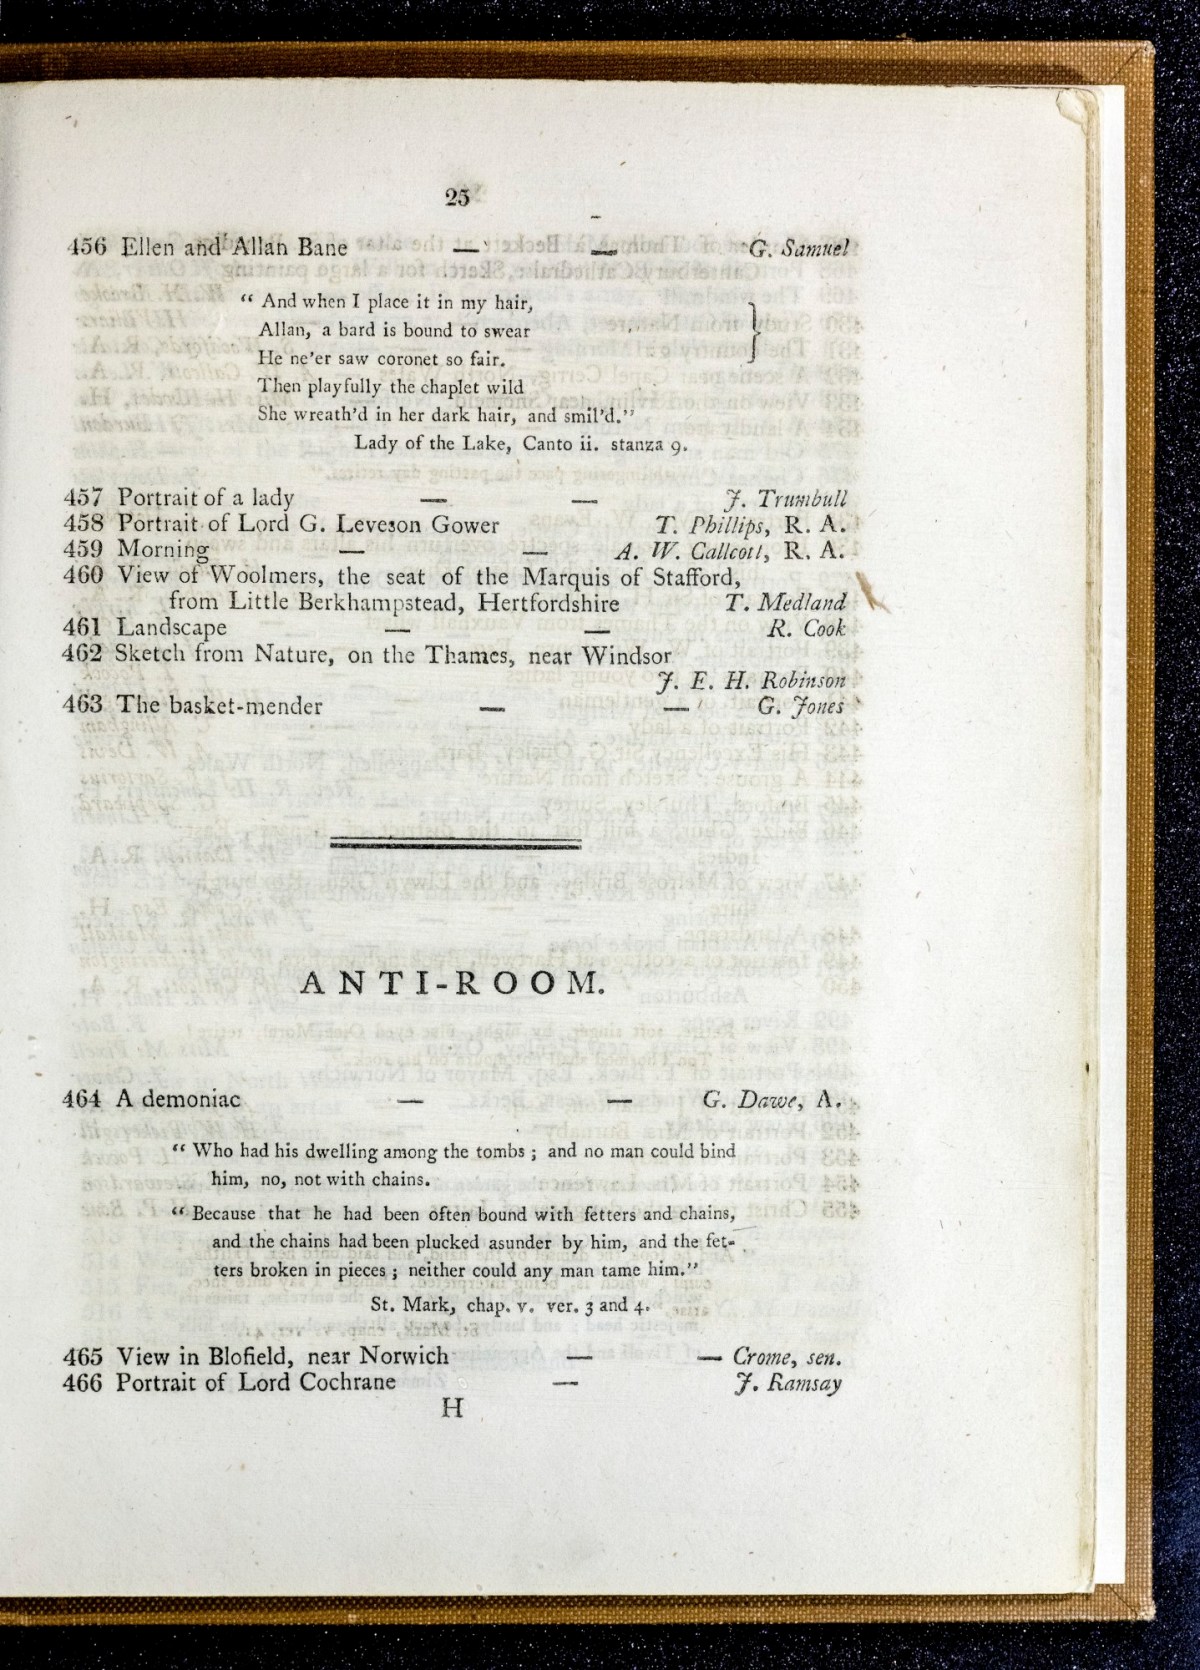 25
456 Ellen and Allan Bane — — G. Samuel
“ And when I place it in my hair, }
Allan, a bard is bound to swear
He ne'er saw coronet so fair.
Then playfully the chaplet wild
She wreath'd in her dark hair, and smil'd.”
Lady of the Lake, Canto ii. stanza 9.
457 Portrait of a lady — — J. Trumbull
458 Portrait of Lord G. Leveson Gower T. Phillips, R. A.
459 Morning — — A. W. Callcott, R. A.
460 View of Woolmers, the seat of the Marquis of Stafford,
from Little Berkhampstead, Hertfordshire T. Medland
461 Landscape — — R. Cook
462 Sketch from Nature, on the Thames, near Windsor
J. E. H. Robinson
463 The basket-mender — — G. Jones
ANTI-ROOM.
464 A demoniac — — G. Dawe, A.
“ Who had his dwelling among the tombs ; and no man could bind
him, no, not with chains.
“ Because that he had been often bound with fetters and chains,
and the chains had been plucked asunder by him, and the fet-
ters broken in pieces ; neither could any man tame him.”
St. Mark, chap. v. ver. 3 and 4.
465 View in Blofield, near Norwich — — Crome, sen.
466 Portrait of Lord Cochrane — J. Ramsay
H